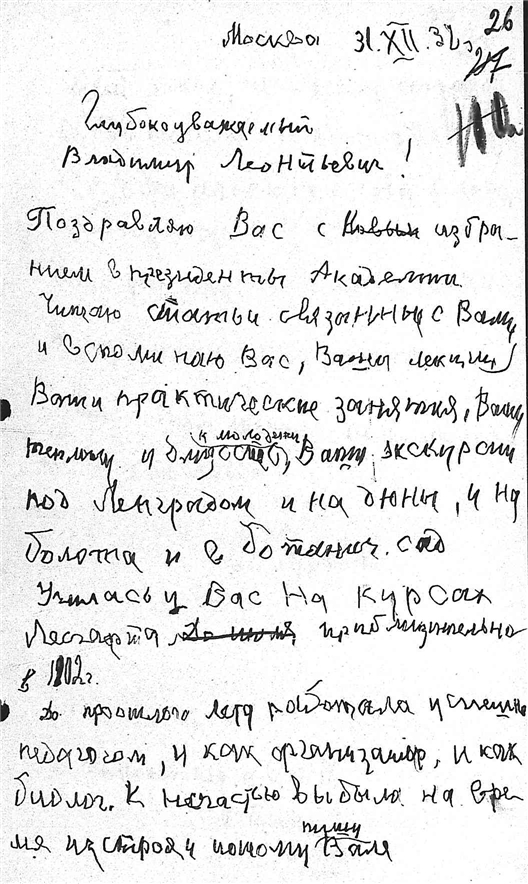 26
27
Москва 31.XII.36г.
Глубокоуважаемый
Владимир Леонтьевич!
Поздравляю Вас с новым избра-
нием в президенты Академии.
Читаю статьи связанные с Вами,
и вспоминаю Вас, Ваши лекции,
Ваши практические занятия, Вашу
к молодежи
теплоту и близость, Ваши экскурсии
под Ленградом и на дюны, и на
болота и в ботанич. сад
Училась у Вас на курсах
Лесгафта приблизительно
в 1902г.
До прошлого лета работала успешно
педагогом, и как организатор, и как
биолог. К несчастью выбыла на вре-
пишу
мя из строя и потому Вам